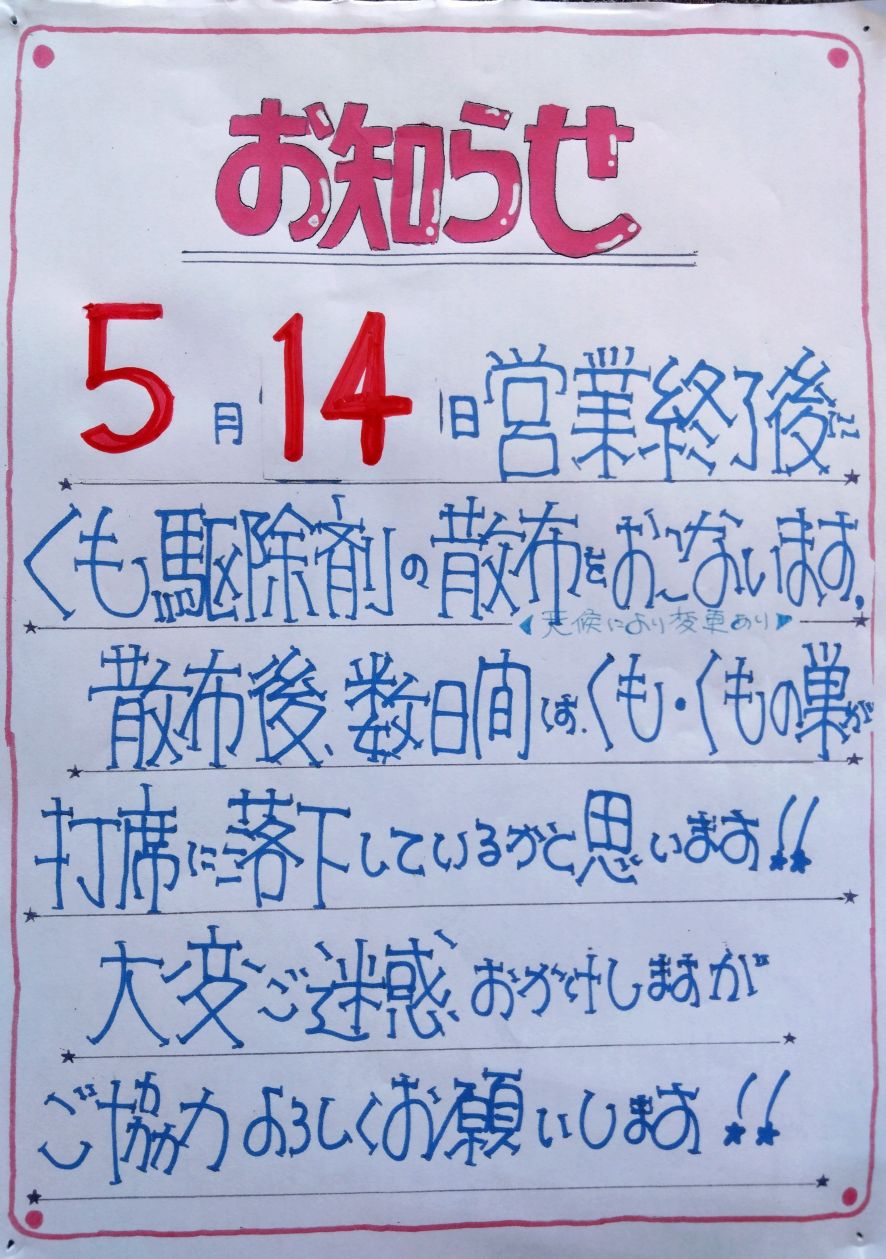 お知らせ
5月14日営業終了後に
くも駆除剤の散布をおこないます,
天候により変更あり
散布後、数日間は、くも・くもの巣が
打席に落下しているかと思います!!
大変ご迷惑おかけしますが
ご協力よろしくお願いします!!